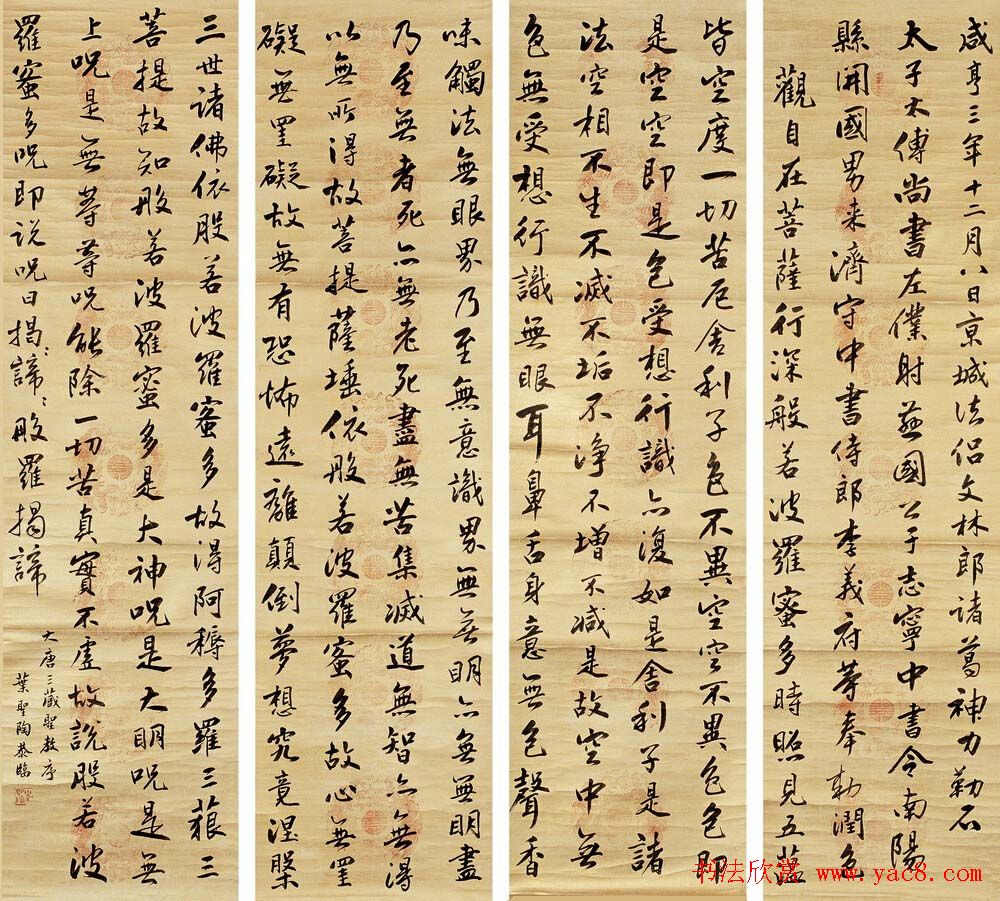 咸亨三年十二月八日京城法侣文林郎諸葛神力勒石
太子太傅尚書左僕射燕國公于志寧中書令南陽
縣開國男来濟守中書侍郎李義府等奉勅潤色
觀自在菩薩行深般若波羅蜜多時照見五蕴
皆空度一切苦厄舍利子色不異空空不異色色即
是空空即是色受想行識亦復如是舍利子是諸
法空相不生不滅不垢不净不增不减是故空中無
色無受想行識無眼耳鼻舌身意無色聲香
味觸法無眼界乃至無意識界無无明亦無無明盡
乃至無者死亦無老死盡無苦集滅道無智亦無得
以無所得故菩提薩埵依般若波羅蜜多故心無罣
礙無罣礙故無有恐怖遠離顛倒夢想究竟涅槃
三世諸佛依般若波羅蜜多故得阿耨多羅三藐三
菩提故知般若波羅蜜多是大神呪是大明呪是無
上呪是無等等呪能除一切苦真實不虛故說般若波
羅蜜多呪即説呪曰揭：諦：般羅揭諦
大唐三藏聖教序
葉聖陶恭臨
书法欣赏 www.yac8.com